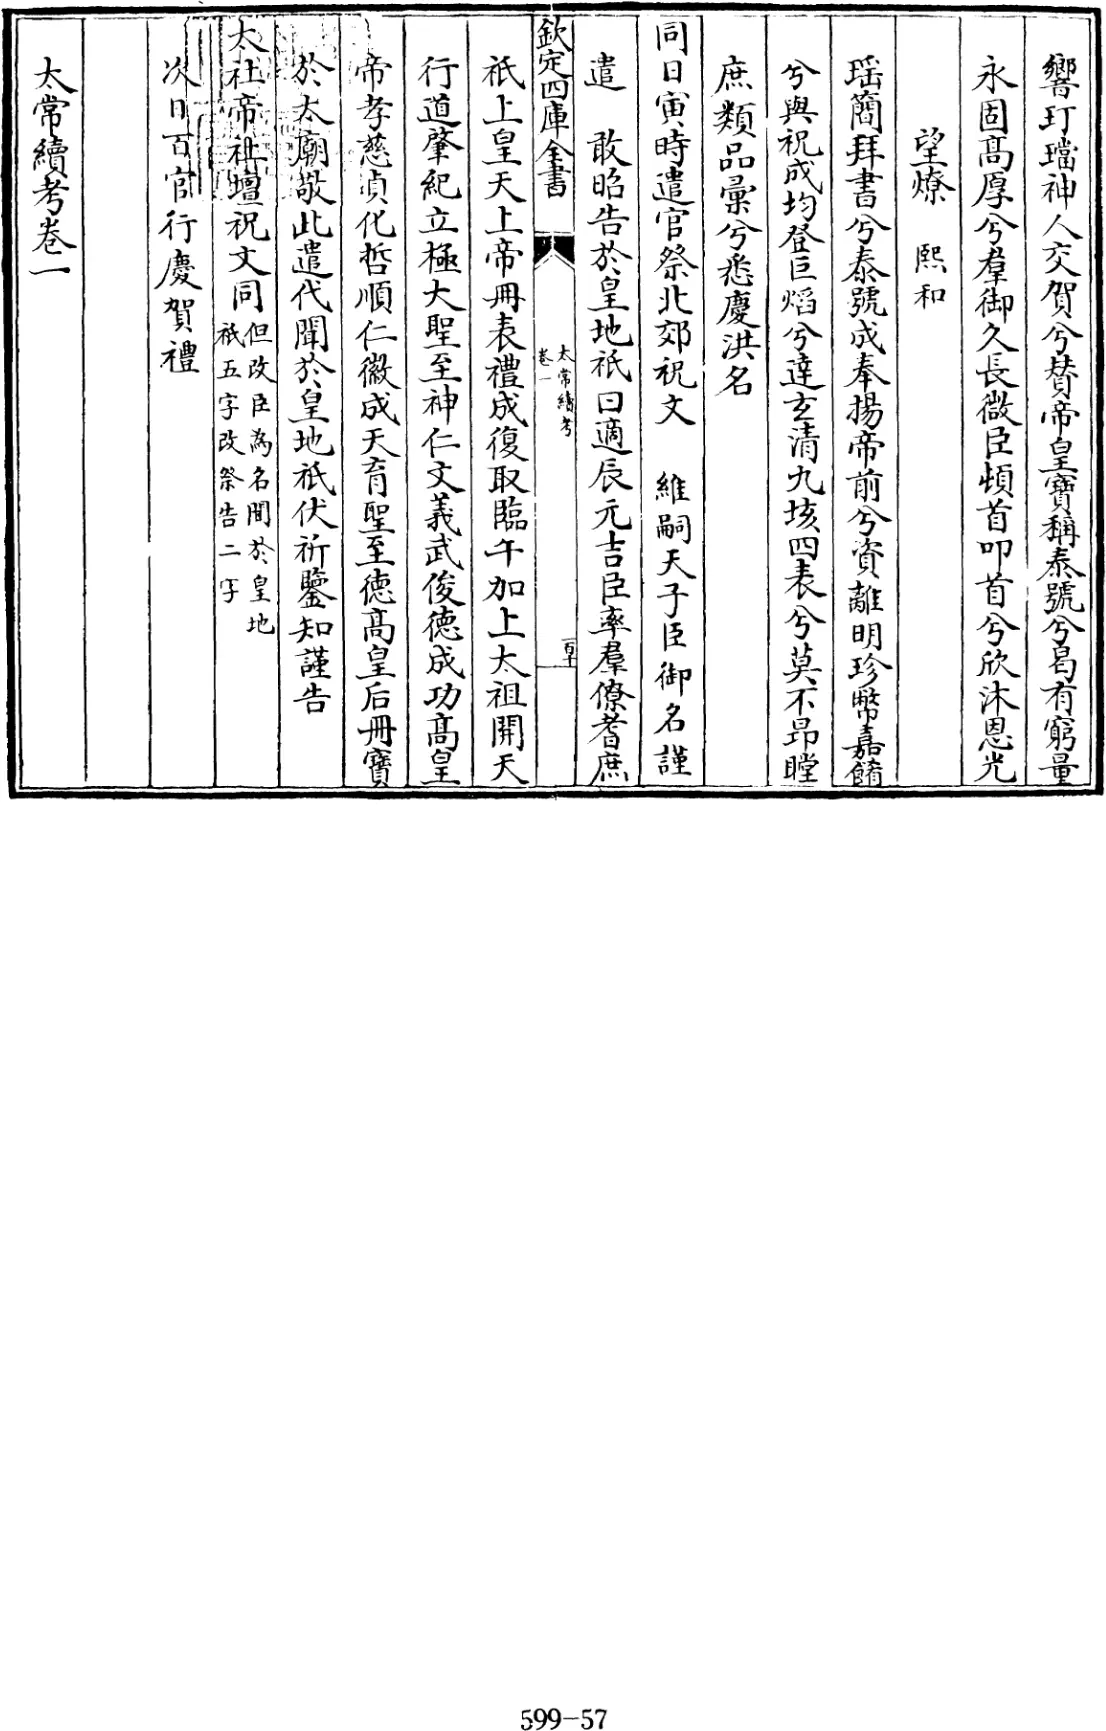 響玎璫神人交賀兮賛帝皇寳稱泰號兮曷有窮量
永固髙厚兮羣御久長微臣頓首叩首兮欣沐恩光
望燎　熙和
瑶簡拜書兮泰號成奉揚帝前兮資離明珍幣嘉餚
兮與祝成均登巨熖兮達玄清九垓四表兮莫不昻瞠
庶類品彚兮悉慶洪名
同日寅時遣官祭北郊祝文　維嗣天子臣御名謹
遣　敢昭告於皇地祇曰適辰元吉臣率羣僚耆庶
欽定四庫全書
太常續考
卷一
百十
祇上皇天上帝冊表禮成復取臨午加上太祖開天
行道肇紀立極大聖至神仁文義武俊德成功髙皇
帝孝慈貞化哲順仁徽成天育聖至德髙皇后冊寳
於太廟敬此遣代聞於皇地祇伏祈鑒知謹告
太社帝社壇祝文同但改臣為名聞於皇地
祇五字改祭告二字
次日百官行慶賀禮
太常續考卷一
599-57